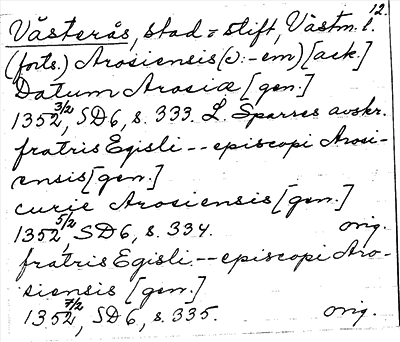 12.
Västerås, stad o stift, Västm. l.
(forts.) Arosiensis (ɔ: -em) [ack.]
Datum Arosiæ [gen.]
1352 3/2, SD6, s. 333. L. Sparres avskr.
fratris Egisli -- episcopi Arosi-
ensis [gen.]
curie Arosiensis [gen.]
1352 5/2, SD6, s. 334. orig.
fratris Egisli -- episcopi Aro-
siensis [gen.]
1352 7/2, SD6, s. 335. orig.